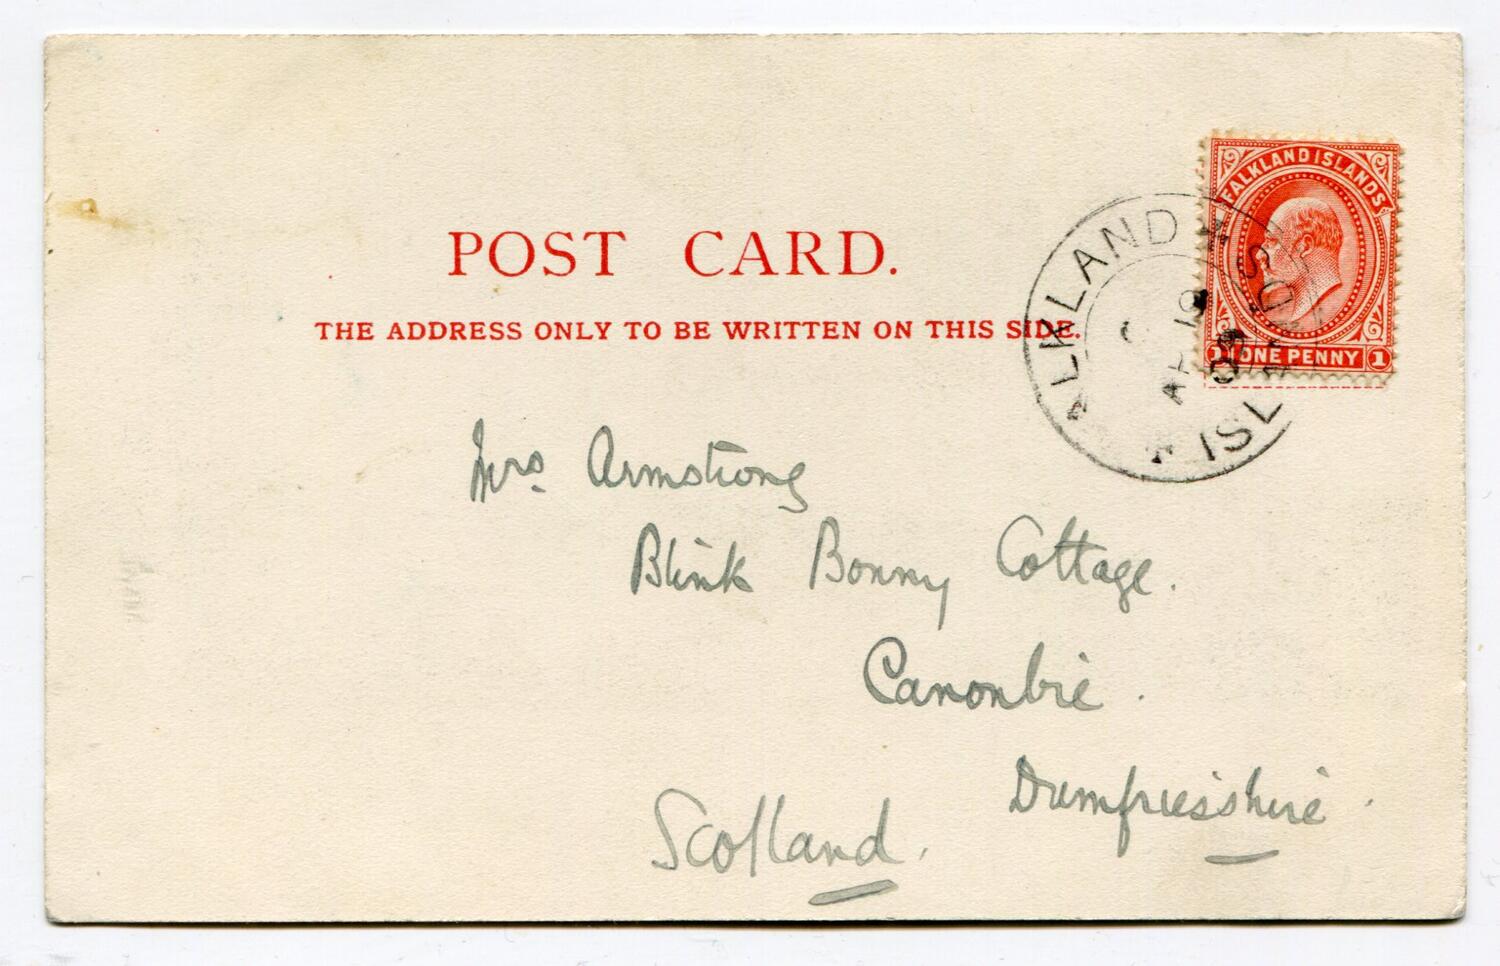 POST CARD.
THE ADDRESS ONLY TO BE WRITTEN ON THIS SIDE.
FALKLAND ISLANDS
1 ONE PENNY 1
ALKLAND ISL DS
AP 19
Mrs. Armstrong
Blink Bonny Cottage.
Canonbie.
Dumfriesshire.
Scotland.